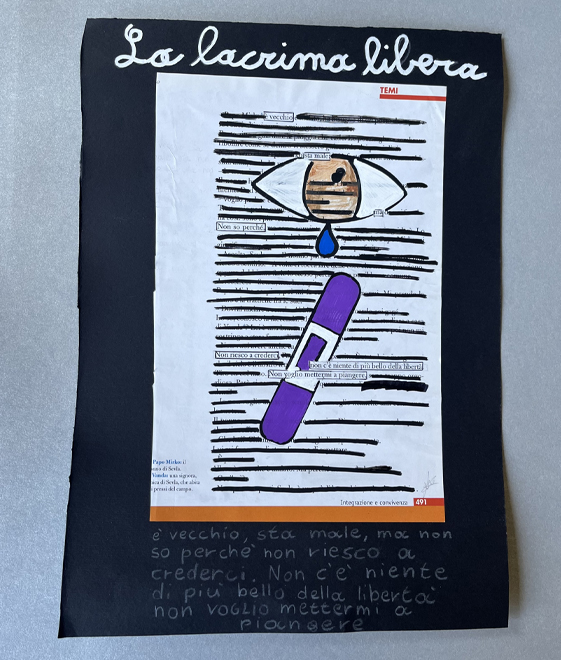 La lacrima libera
TEMI
è vecchio
sta male,
ma
Non so perché,
Non riesco a crederci,
non c'è niente di più bello della libertà
Non voglio mettermi a piangere,
Papo Mirko: il
di Serla.
una signora,
di Serla, che abita
pressi del campo.
Integrazione e convivenza 491
è vecchio, sta male, ma non
so perchè non riesco a
crederci. Non c'è niente
di più bello della libertà
non voglio mettermi a
piangere